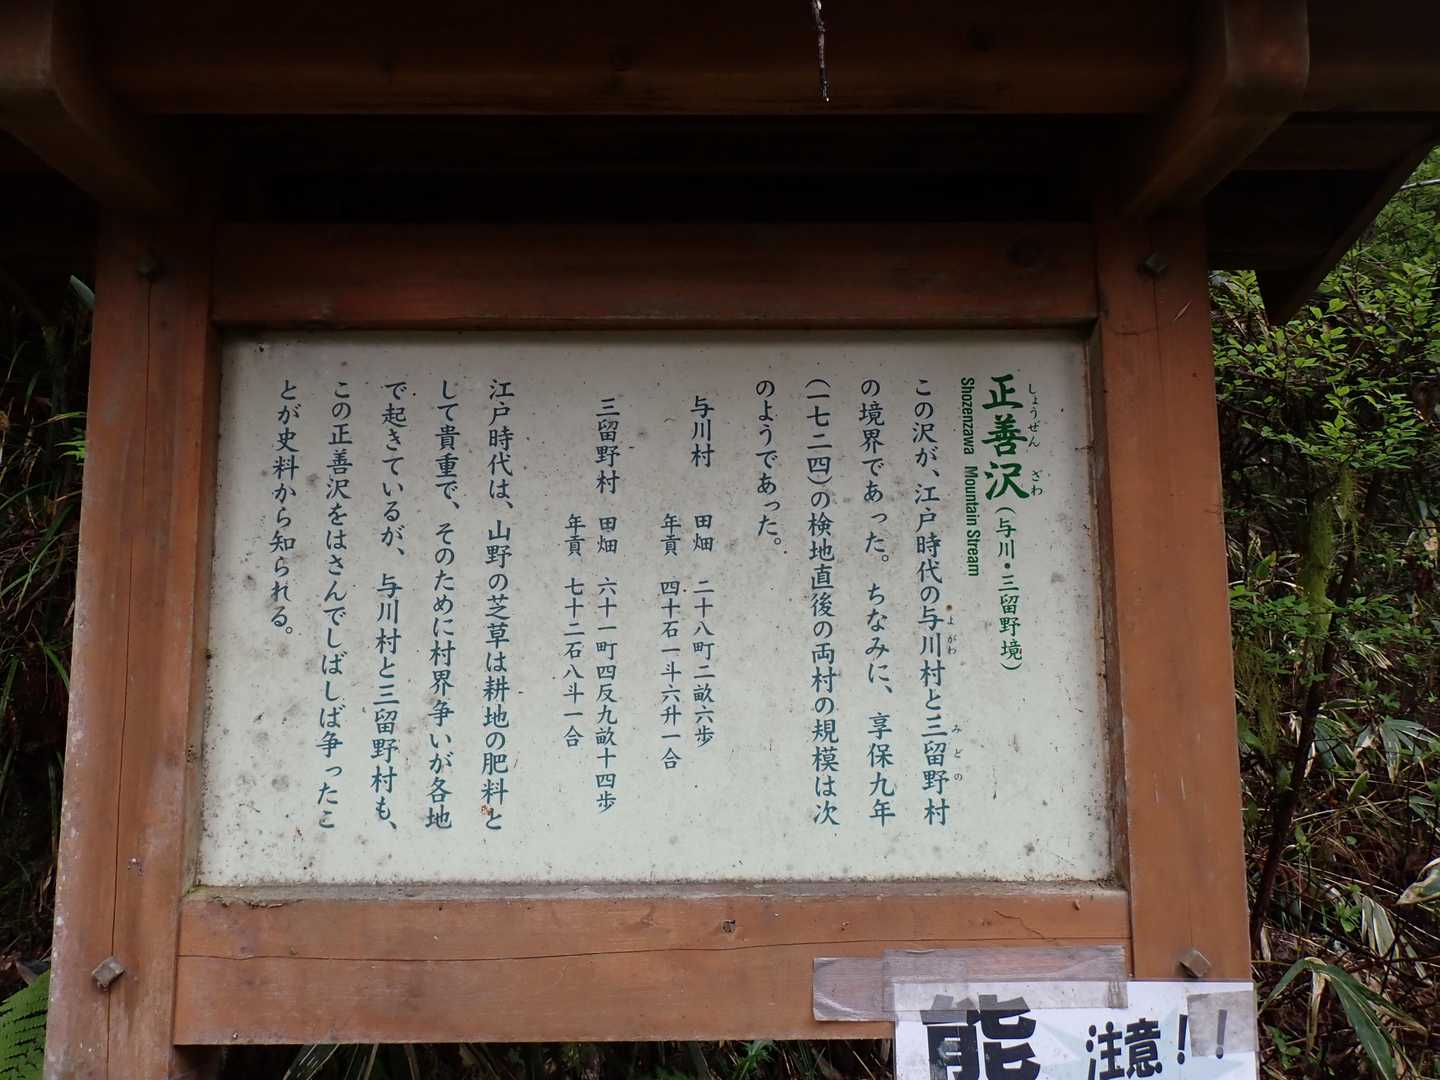 正善沢(与川・三留野境)
しょうぜん ざわ
Shozenzawa Mountain Stream
この沢が、江戸時代の与川村と三留野村
よがわ みどの
の境界であった。ちなみに、享保九年
(一七二四)の検地直後の両村の規模は次
のようであった。
与川村 田畑 二十八町二畝六歩
年貢 四十石一斗六升一合
三留野村 田畑 六十一町四反九畝十四歩
年貢 七十二石八斗一合
江戸時代は、山野の芝草は耕地の肥料と
して貴重で、そのために村界争いが各地
で起きているが、与川村と三留野村も、
この正善沢をはさんでしばしば争ったこ
とが史料から知られる。
熊 注意!!